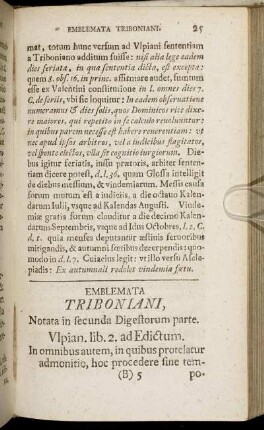 EMBLEMATA TRIBONIANI. 25
mat, totum hunc versum ad Vlpiani sententiam
a Triboniano additum fuisse: nisi alia lege eadem
dies feriata, in qua sententia dicta, est excepta:
quem 8. obs. 16. in princ. affirmare audet, sumtum
esse ex Valentini constitutione in l. omnes dies 7.
C. de feriis, vbi sic loquitur: In eadem observatione
numeramus & dies solis, quos Dominicos rite dixe-
re maiores, qui repetito in se calculo revoluuntur:
in quibus parem necesse est habere reuerentiam: vt
nec apud ipsos arbitros, vel a iudicibus flagitatos,
vel sponte electos, vlla sit cognitio iurgiorum. Die-
bus igitur feriatis, iussu prætoris, arbiter senten-
tiam dicere potest, d. l. 36. quam Glossa intelligit
de diebus messium, & vindemiarum. Messis causa
forum mutum est a iudiciis, a die octauo Kalen-
darum Iulii, vsque ad Kalendas Augusti. Vinde-
miæ gratis forum clauditur a die decimo Kalen-
darum Septembris, vsque ad Idus Octobres, l. 2. C.
d. t. quia mensis deputatur æstiuis feruoribus
mitigandis, & autumni fœtibus decerpendis: quo-
modo in d. l. 7. Cuiacius legit: vt illo versu Ascle-
piadis: Ex autumnali redolet vindemia fœtu.
EMBLEMATA
TRIBONIANI,
Notata in secunda Digestorum parte.
Vlpian. lib. 2. ad Edictum.
In omnibus autem, in quibus protelatur
admonitio, hoc procedere sine tem-
(B) 5 po-